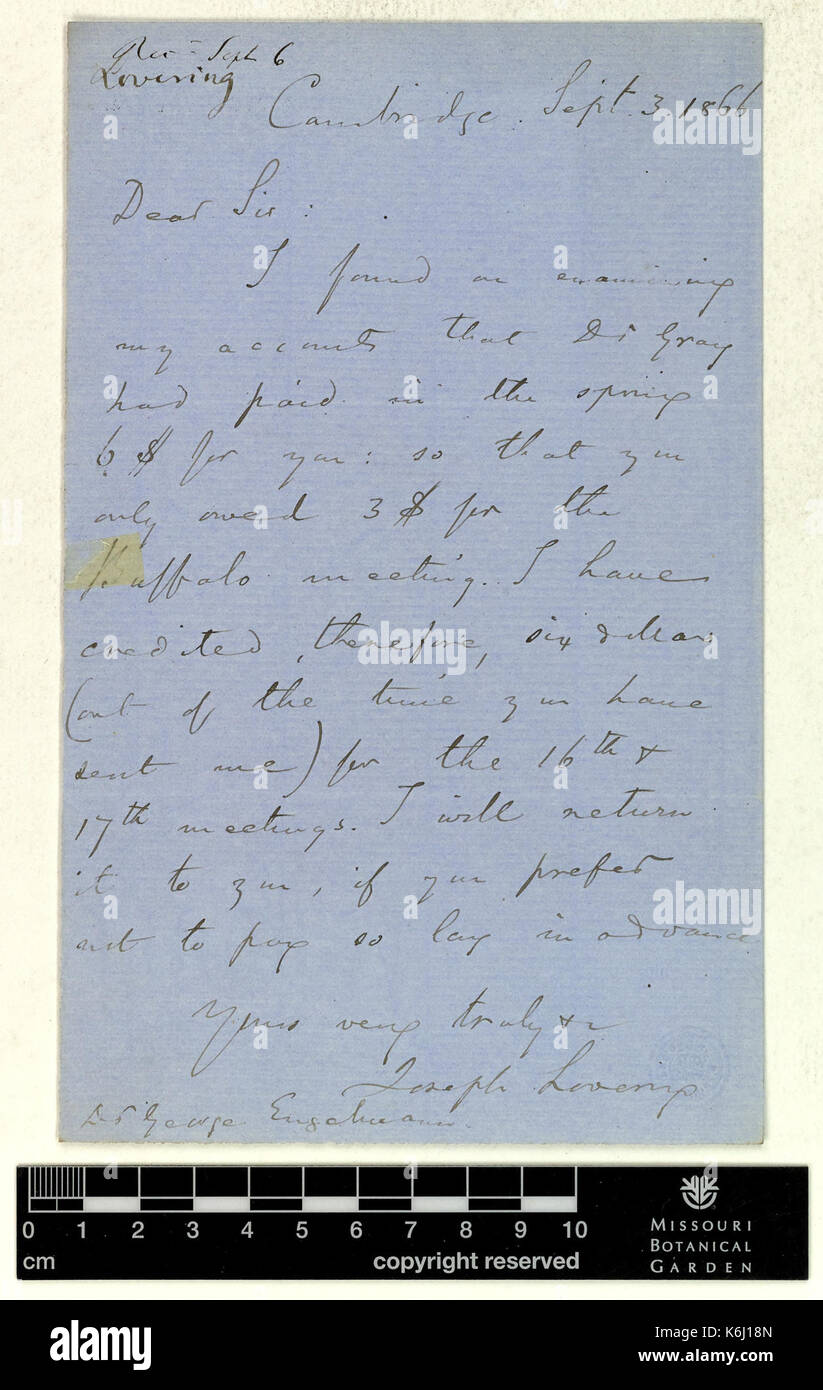 Rec Sept 6
Lovering
Cambridge. Sept. 3. 1866
Dear Sir:
I found on examining
my accounts that Dr Gray
had paid in the spring
6 $ for you: so that you
only owed 3 $ for the
Buffalo meeting. I have
credited, therefore, six dollars
(out of the   you have
sent me) for the 16th &
17th meetings. I will return
it to you, if you prefer
not to pay so long in advance
Yours very truly &c
Joseph Lovering
Dr George Engelmann.
0 1 2 3 4 5 6 7 8 9 10
cm
copyright reserved
MISSOURI
BOTANICAL
GARDEN
alamy
Image ID: K6J18N
www.alamy.com